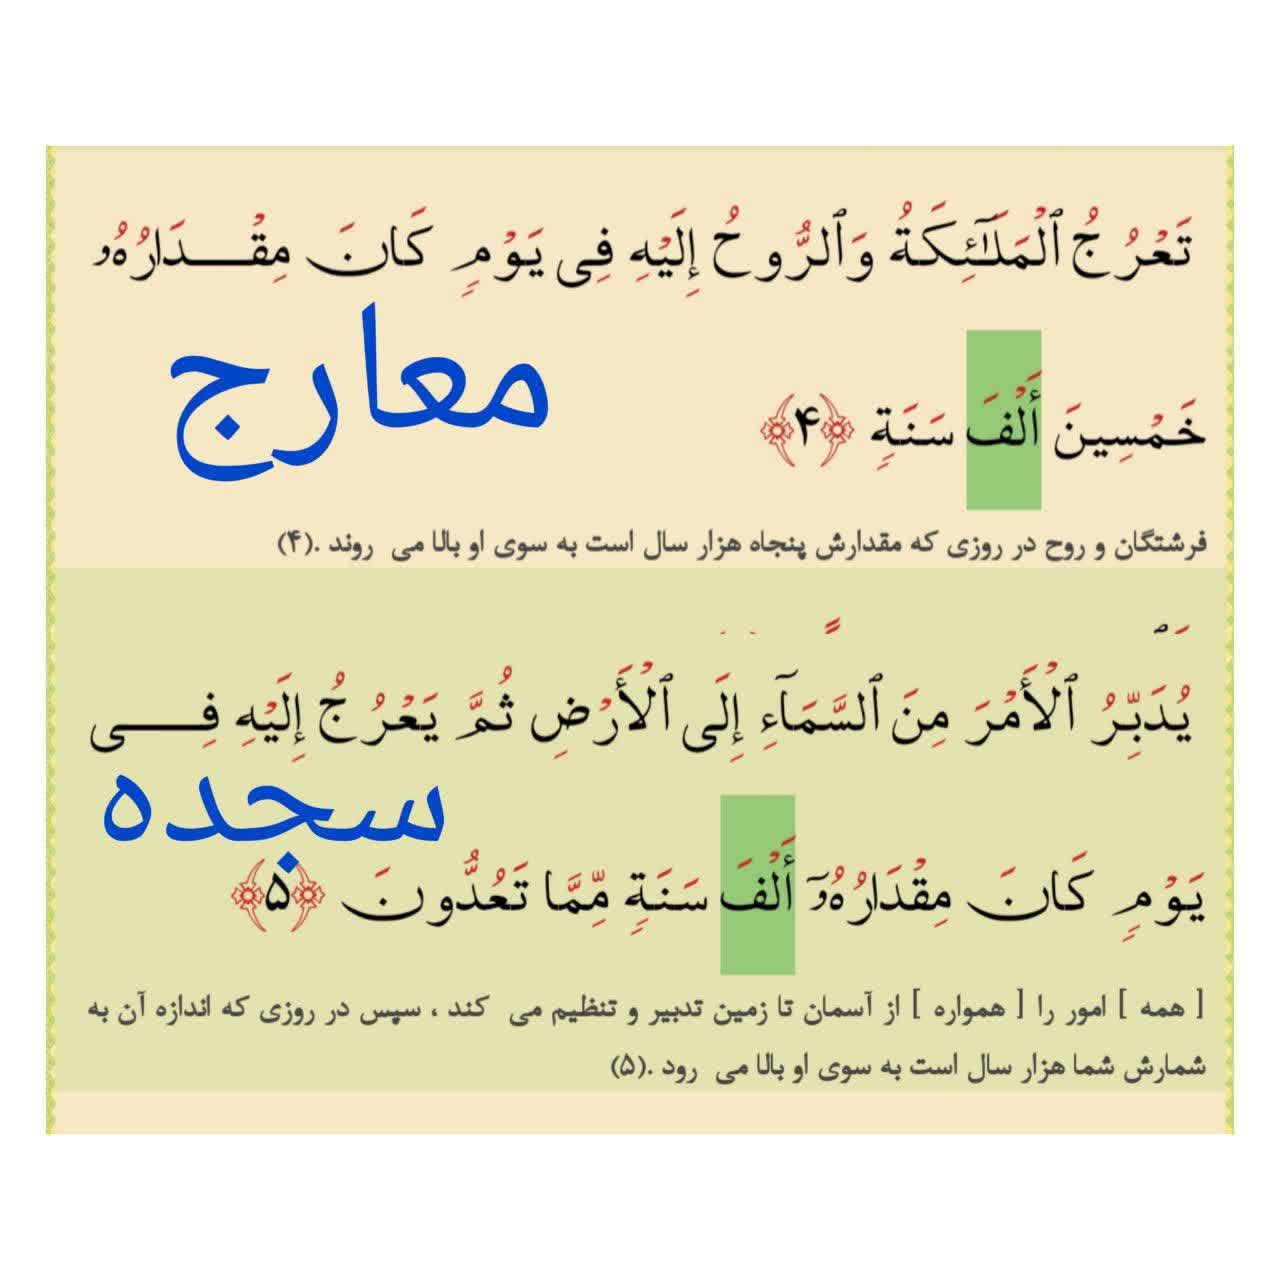 تَعْرُجُ ٱلْمَلَـٰٓئِكَةُ وَٱلرُّوحُ إِلَيْهِ فِى يَوْمٍ كَانَ مِقْدَارُهُۥ
معارج
خَمْسِينَ أَلْفَ سَنَةٍ ﴿۴﴾
فرشتگان و روح در روزی که مقدارش پنجاه هزار سال است به سوی او بالا می روند .(۴)
يُدَبِّرُ ٱلْأَمْرَ مِنَ ٱلسَّمَآءِ إِلَى ٱلْأَرْضِ ثُمَّ يَعْرُجُ إِلَيْهِ فِى
سجده
يَوْمٍ كَانَ مِقْدَارُهُۥٓ أَلْفَ سَنَةٍ مِّمَّا تَعُدُّونَ ﴿۵﴾
[ همه ] امور را [ همواره ] از آسمان تا زمین تدبیر و تنظیم می کند ، سپس در روزی که اندازه آن به
شمارش شما هزار سال است به سوی او بالا می رود .(۵)